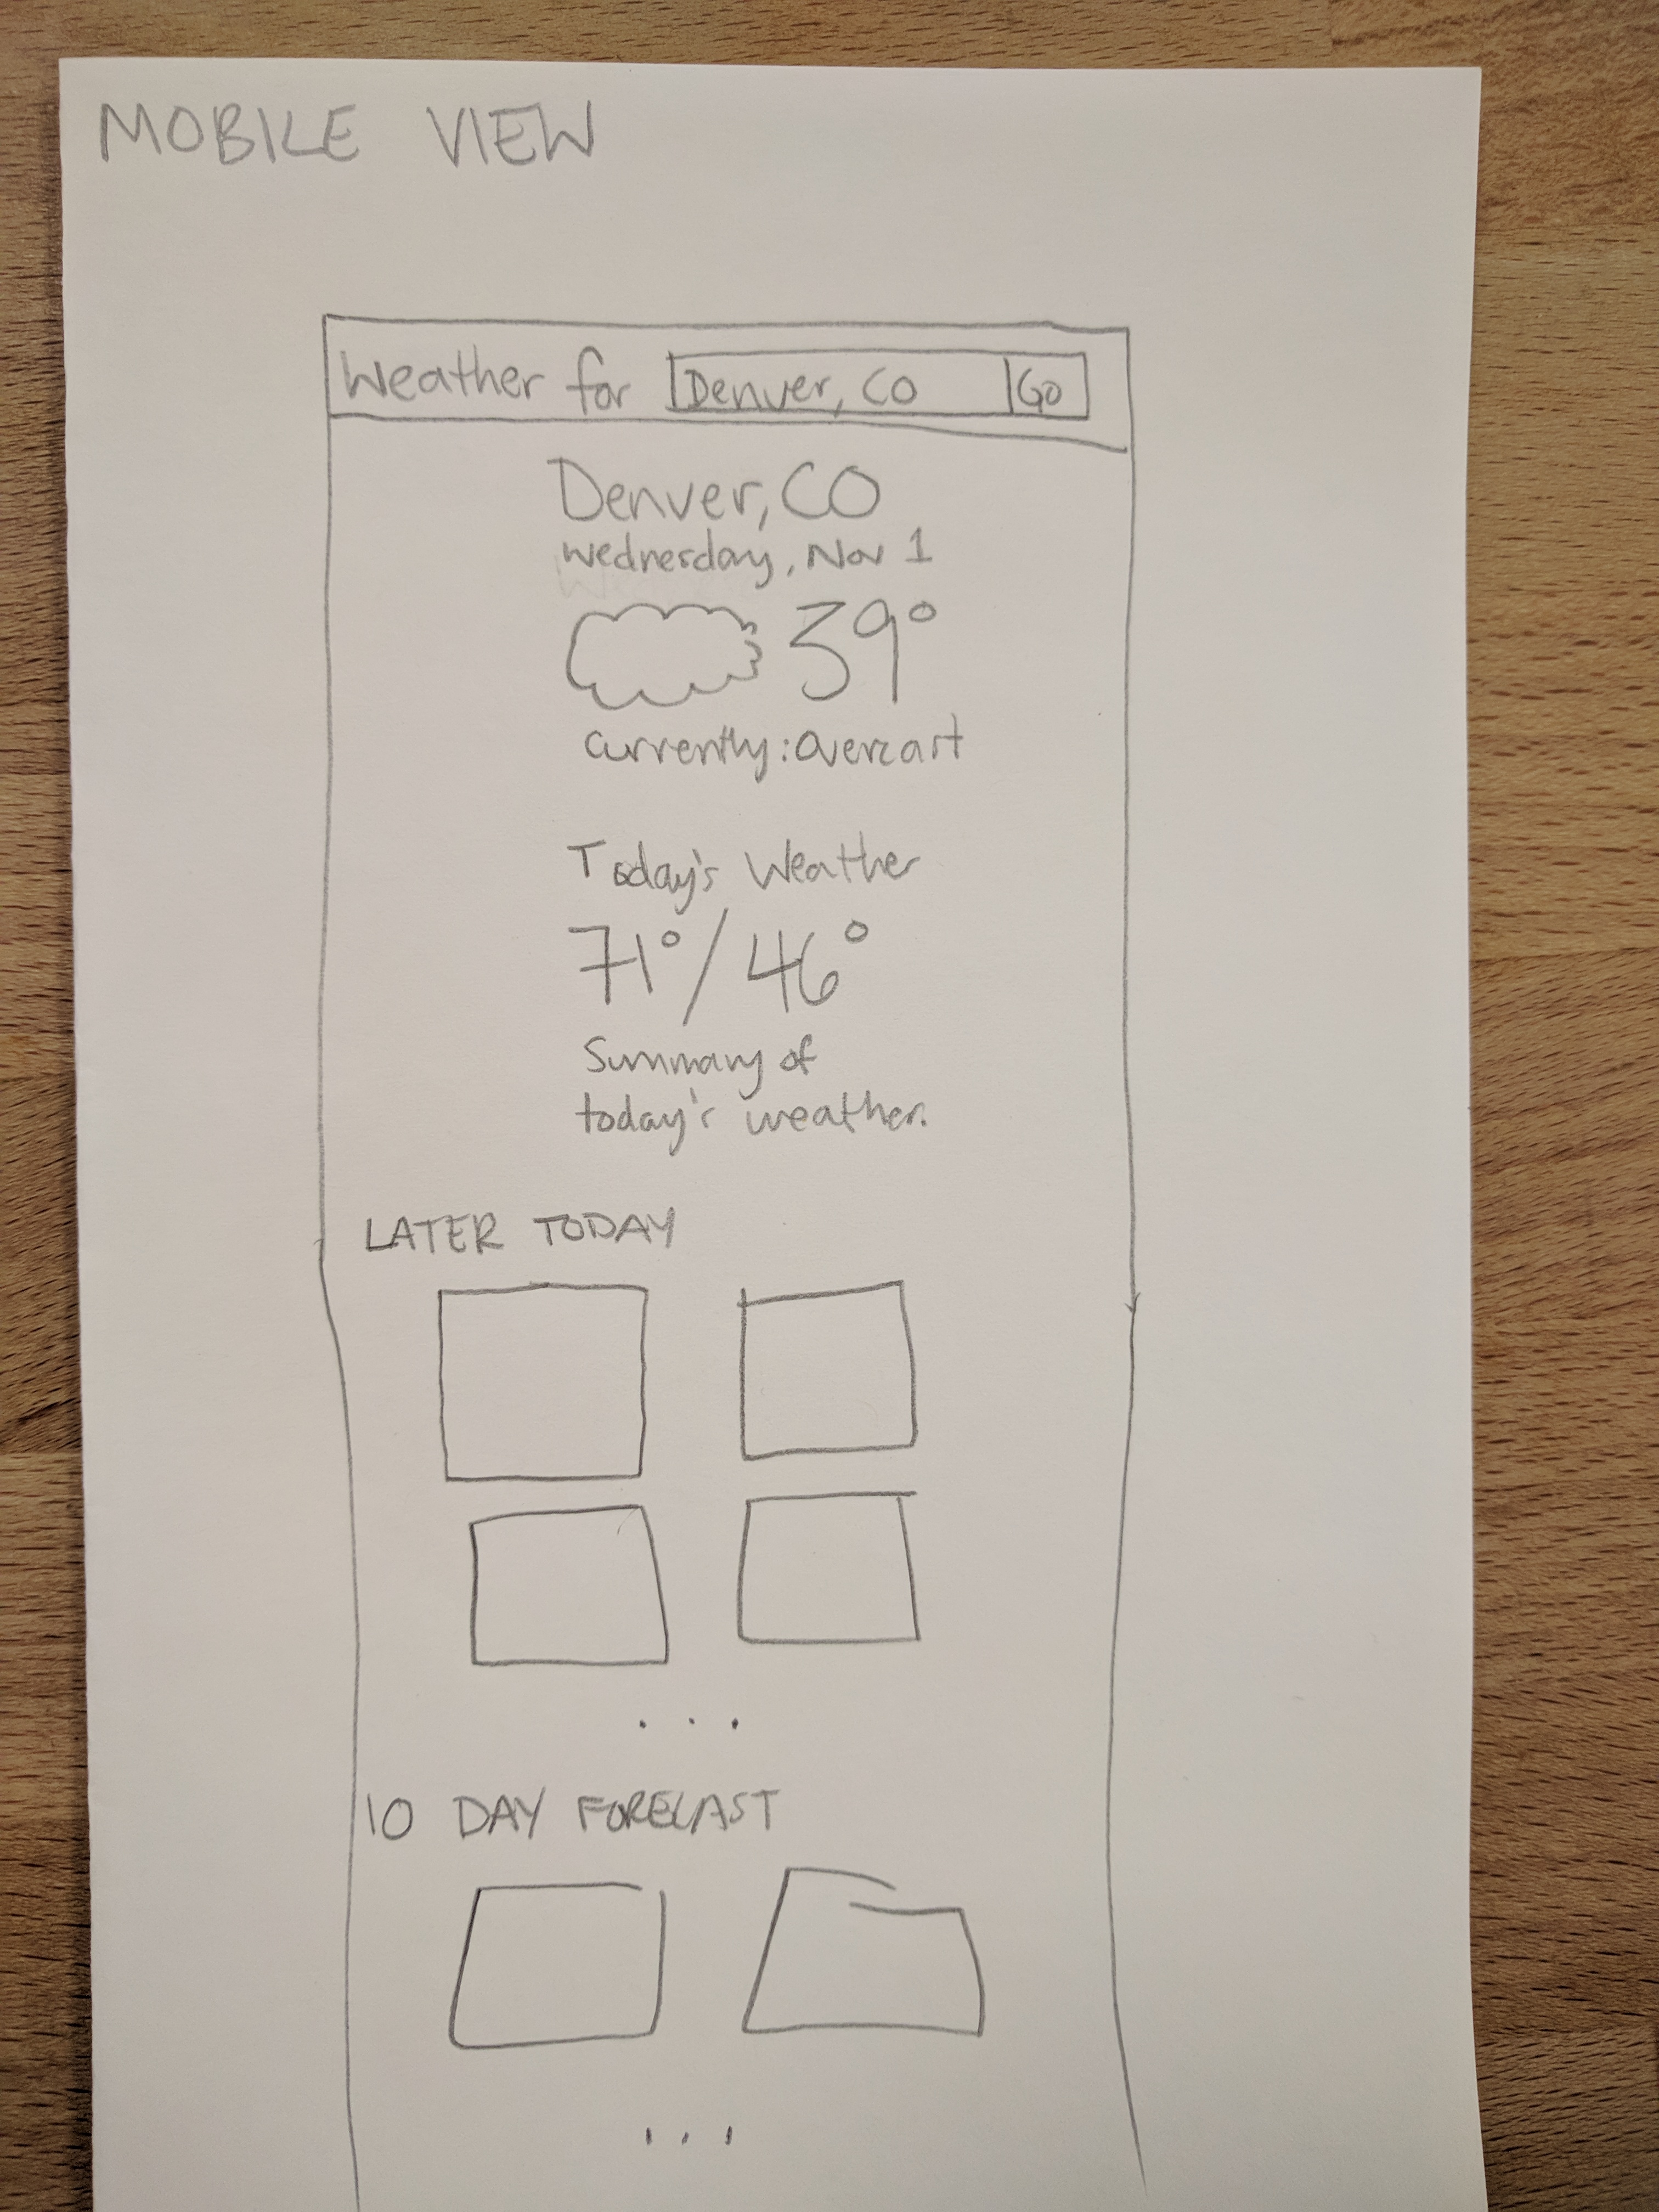 MOBILE VIEW
Weather for Denver, CO Go
Denver, CO
Wednesday, Nov 1
39°
Currently: Overcast
Today's Weather
71°/46°
Summary of
today's weather.
LATER TODAY
...
10 DAY FORECAST
...